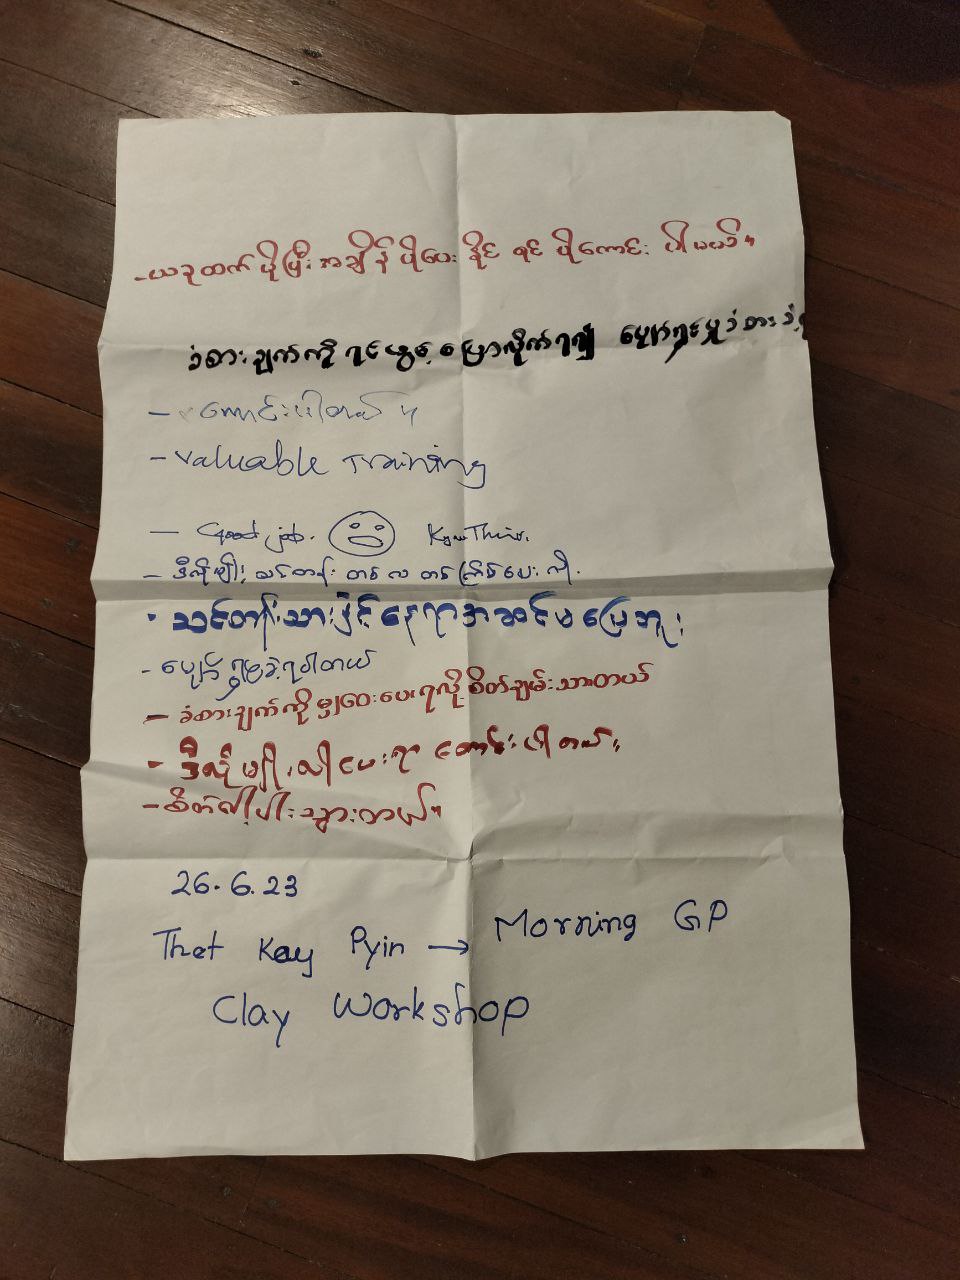 - ယခုထက်ပိုပြီးအချိန်ပိုပေးနိုင်ရင် ပိုကောင်းပါမယ်။
ခံစားချက်ကိုရင်ဖွင့်ပြောလိုက်ရ၍ ပျော်ရွှင်မှုခံစား
- ကောင်းပါတယ်။
- valuable Training
- Good job. Kyaw Thins.
- ဒီလိုမျိုး သင်တန်း တစ်လ တစ်ကြိမ်ပေးလို့.
• သင်တန်းသားဖြင့်နေရာအဆင်မပြေဘူး။
- ပျော်ရွှင်ခဲ့ရပါတယ်
- ခံစားချက်ကိုမျှဝေပေးရလို့စိတ်ချမ်းသာတယ်
- ဒီလိုမျိုးလုပ်ပေးတာ ကောင်းပါတယ်။
- စိတ်ပေါ့ပါးသွားတယ်။
26.6.23
Thet Kay Pyin → Morning GP
Clay Workshop